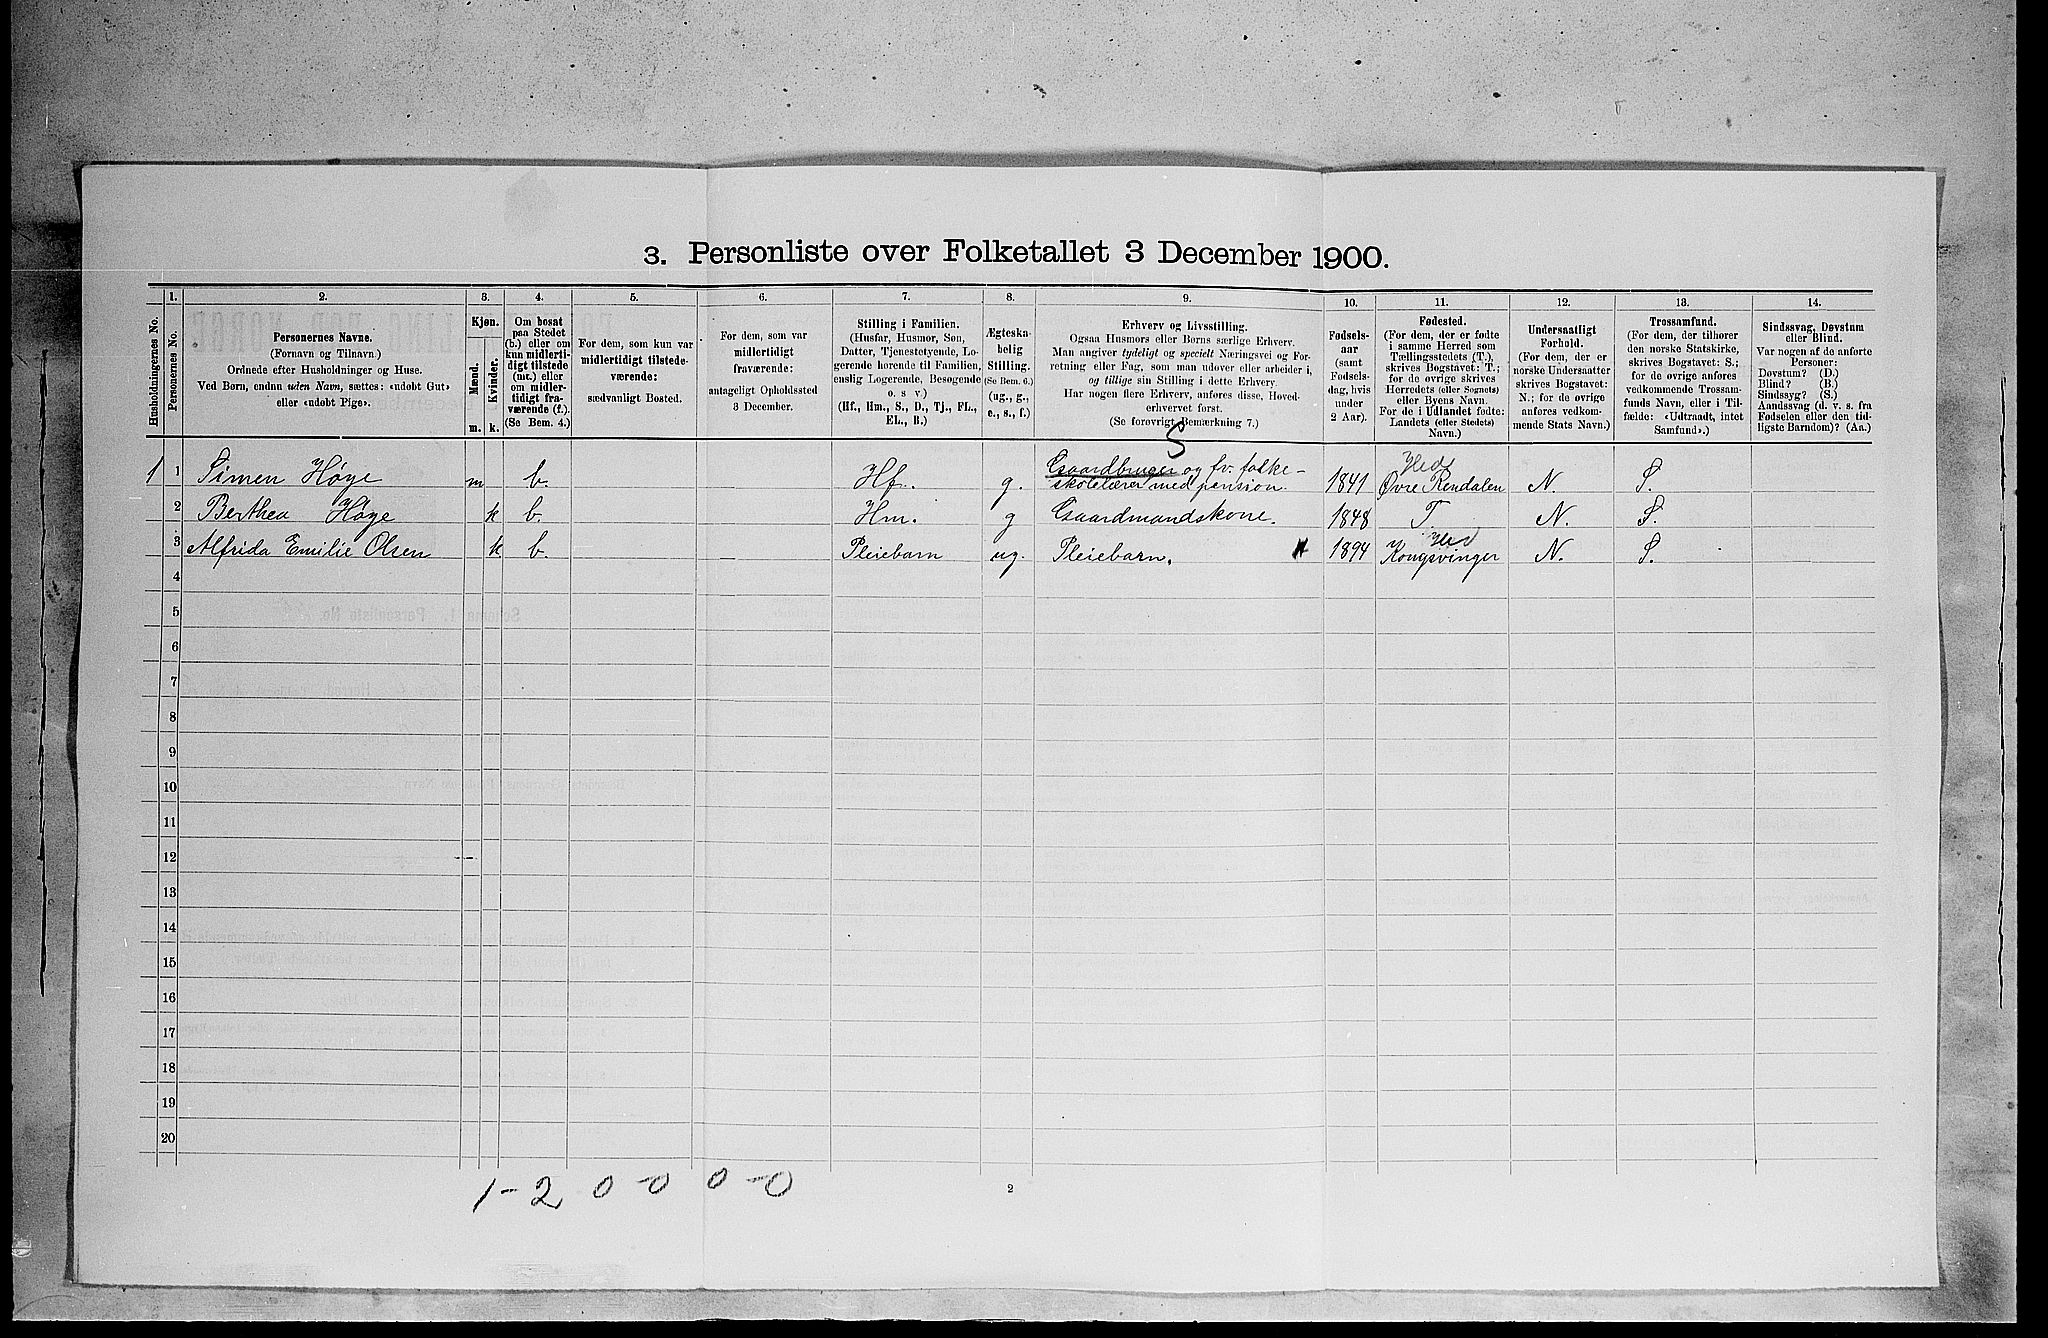 3. Personliste over Folketallet 3 December 1900.
Husholdningernes No.
1.
Personernes No.
2.
Personernes Navne.
(Fornavn og Tilnavn.)
Ordnede efter Husholdninger og Huse.
Ved Børn, endnu uden Navn, sættes: «udøbt Gut»
eller «udøbt Pige».
3.
Kjøn.
Mænd.
Kvinder.
m. k.
4.
Om bosat
paa Stedet
(b.) eller om
kun midlerti-
digt tilstede
(mt.) eller
om midler-
tidigt fra-
værende (f.).
(Se Bem. 4.)
5.
For dem, som kun var
midlertidigt tilstede-
værende:
sædvanligt Bosted.
6.
For dem, som var
midlertidigt
fraværende:
antageligt Opholdssted
3 December.
7.
Stilling i Familien.
(Husfar, Husmor, Søn,
Datter, Tjenestetyende, Lo-
gerende hørende til Familien,
enslig Logerende, Besøgende
o. s. v.)
(Hf., Hm., S., D., Tj., FL.,
EL., B.)
8.
Ægteska-
belig
Stilling.
(Se Bem. 6.)
(ug., g.,
e., s., f.)
9.
Erhverv og Livsstilling.
Ogsaa Husmors eller Børns særlige Erhverv.
Man angiver tydeligt og specielt Næringsvei og For-
retning eller Fag, som man udøver eller arbeider i,
og tillige sin Stilling i dette Erhverv.
Har nogen flere Erhverv, anføres disse, Hoved-
erhvervet først.
(Se forøvrigt Bemærkning 7.)
10.
Fødsels-
aar
(samt
Fødsels-
dag, hvis
under
2 Aar).
11.
Fødested.
(For dem, der er fødte
i samme Herred som
Tællingsstedets (T.),
skrives Bogstavet: T.;
for de øvrige skrives
Herredets (eller Sognets)
eller Byens Navn.
For de i Udlandet fødte:
Landets (eller Stedets)
Navn.)
12.
Undersaatligt
Forhold.
(For dem, der er
norske Undersaatter
skrives Bogstavet:
N.; for de øvrige
anføres vedkom-
mende Stats Navn.)
13.
Trossamfund.
(For dem, der tilhører
den norske Statskirke,
skrives Bogstavet: S.;
for de øvrige anføres
vedkommende Trossam-
funds Navn, eller i Til-
fælde: «Udtraadt, intet
Samfund».)
14.
Sindssvag, Døvstum
eller Blind.
Var nogen af de anførte
Personer:
Døvstum? (D.)
Blind? (B.)
Sindssyg? (S.)
Aandssvag (d. v. s. fra
Fødselen eller den tid-
ligste Barndom)? (Aa.)
S
1 1 Simen Høye m b. Hf. g. Gaardbruger og fv. folke-
skolelærer med pension. 1841 Hed Øvre Rendalen N. S.
2 Berthea Høye k b. Hm. g Gaardmandskone. 1848 T. N. S.
3 Alfrida Emilie Olsen k b. Pleiebarn ug. Pleiebarn. 1894 Hed Kongsvinger N. S.
4
5
6
7
8
9
10
11
12
13
14
15
16
17
18
19
20
1-2 0-0 0-0
2